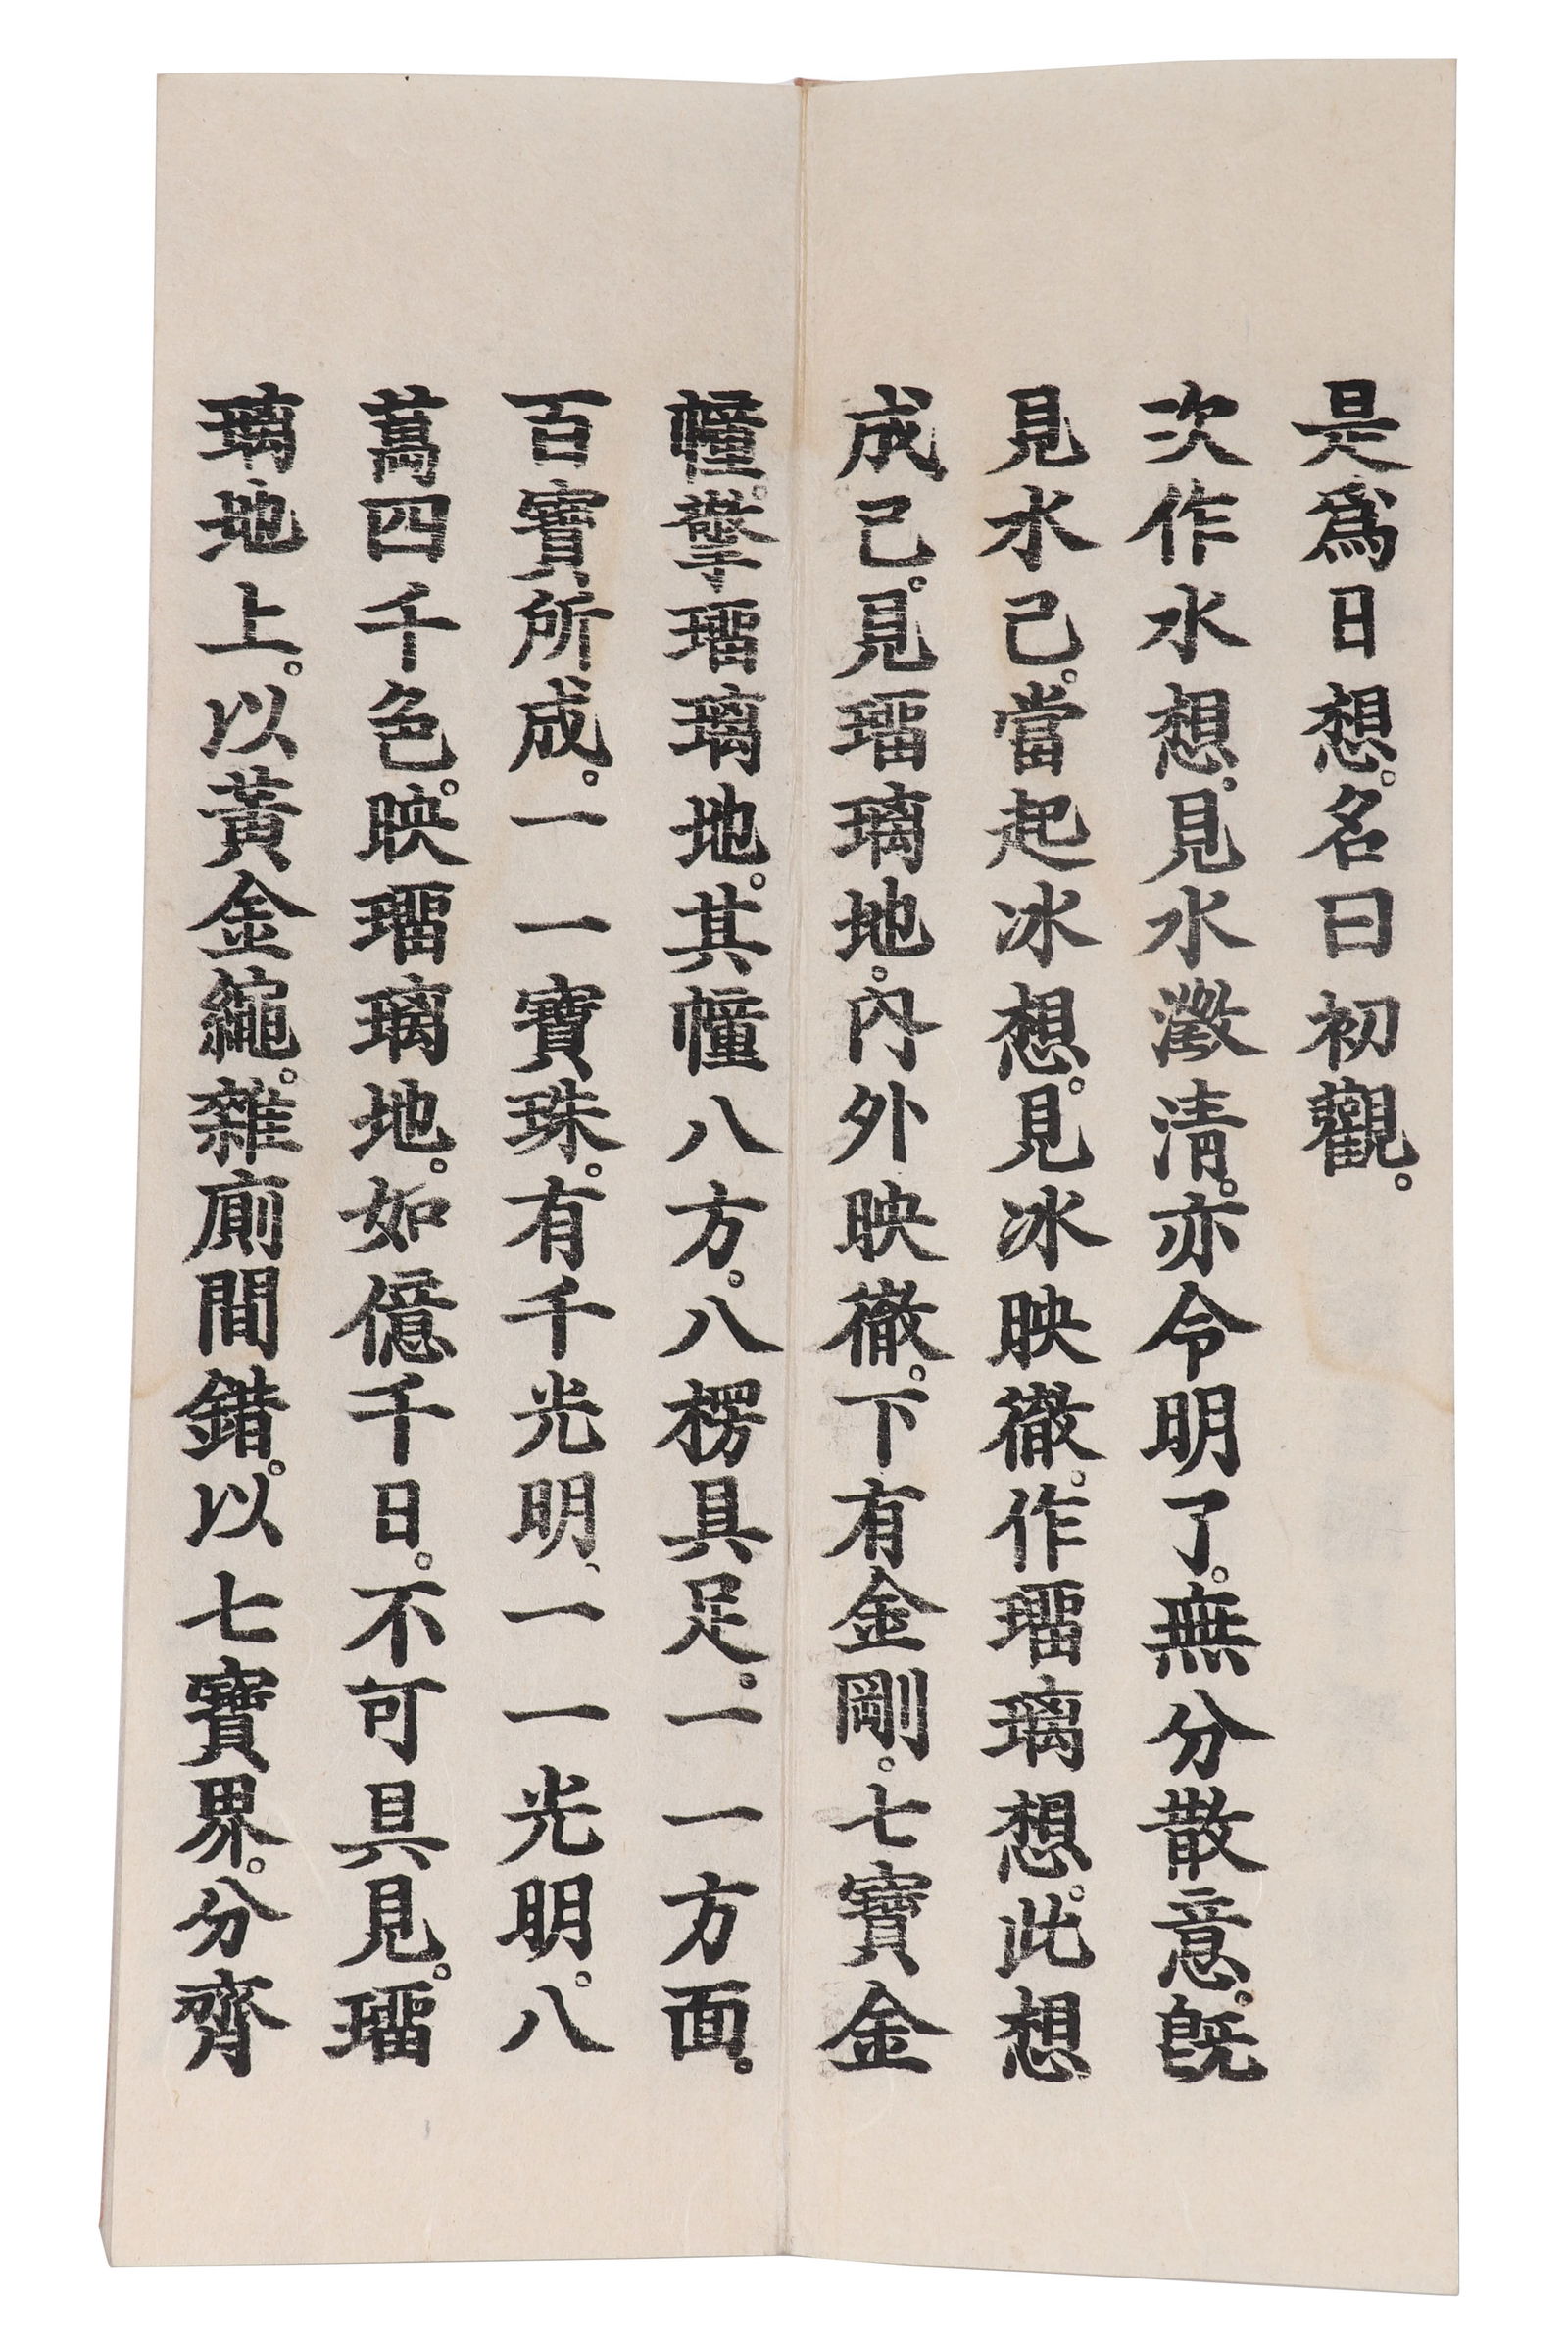 是爲日想。名曰初觀。
次作水想。見水澂清。亦令明了。無分散意。旣
見水已。當起冰想。見冰映徹。作瑠璃想。此想
成已。見瑠璃地。內外映徹。下有金剛。七寶金
幢。擎瑠璃地。其幢八方。八楞具足。一一方面。
百寶所成。一一寶珠。有千光明、一一光明。八
萬四千色。映瑠璃地。如億千日。不可具見。瑠
璃地上。以黃金繩。雜廁間錯。以七寶界。分齊